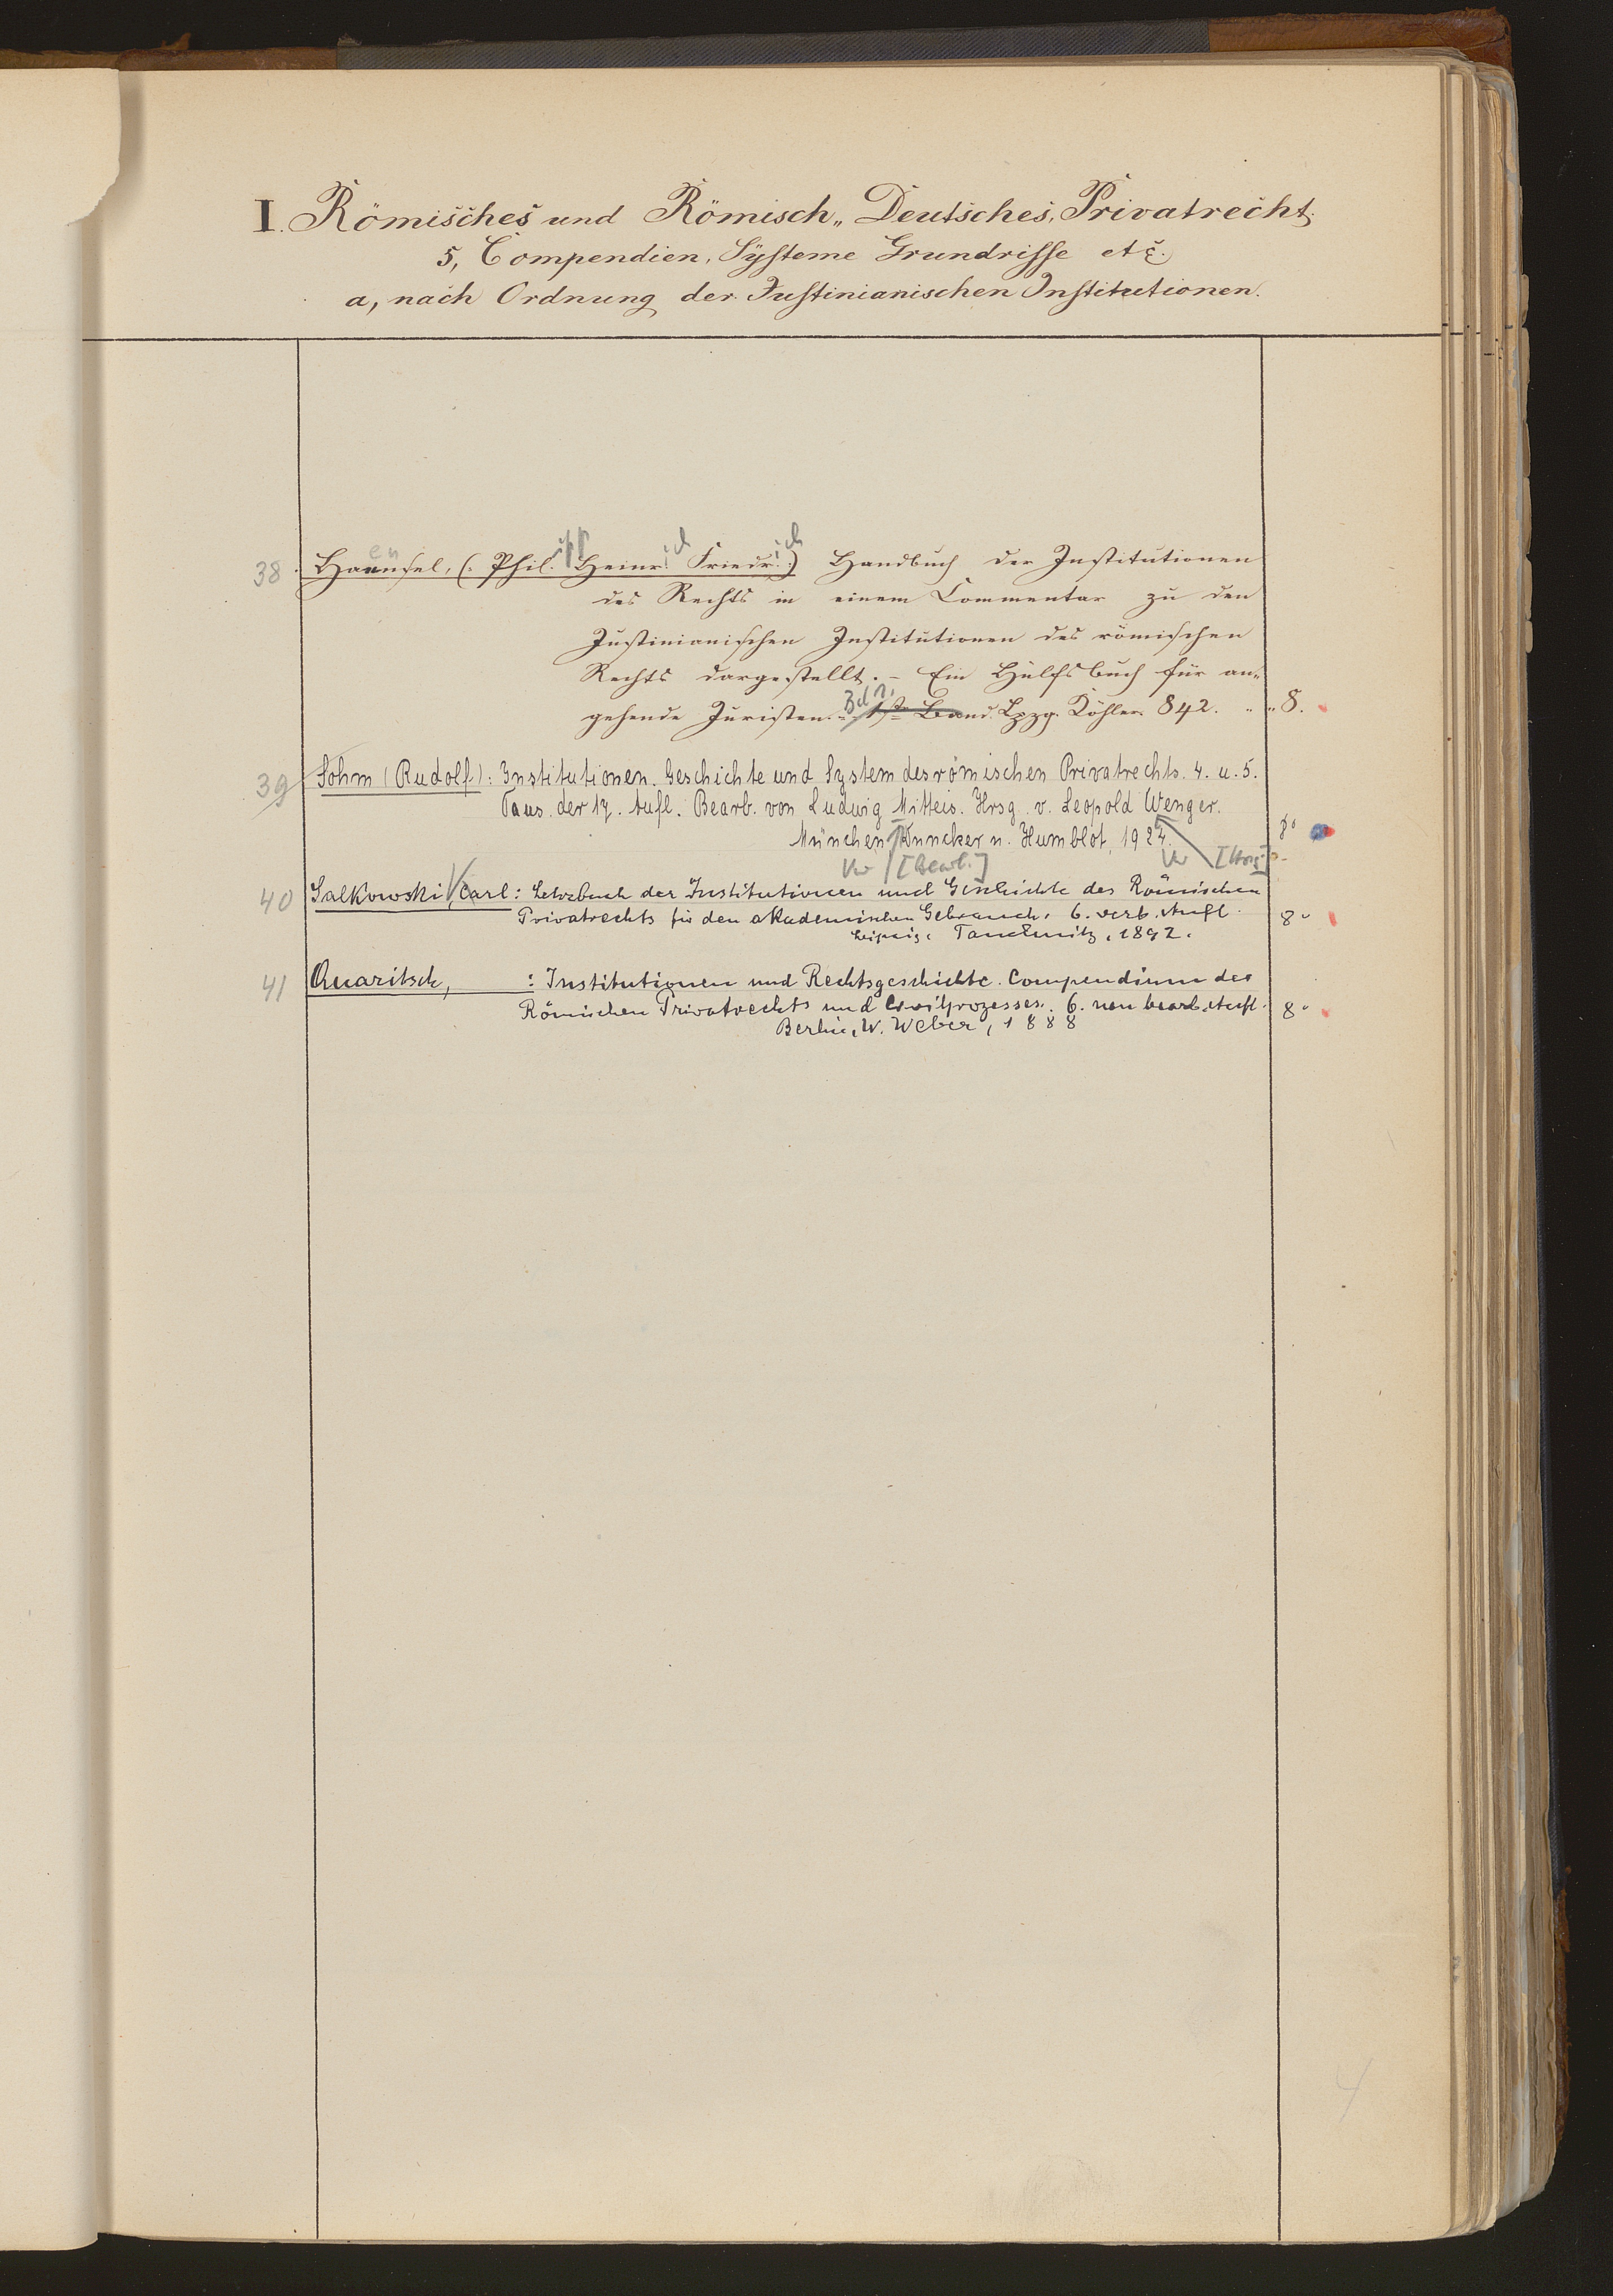 I. Römisches und Römisch„ Deutsches, Privatrecht.
5, Compendien, Systeme Grundrisse etc.
a, nach Ordnung der Justinianischen Institutionen.
en ipp ich ich
38. Haensel, (: Phil. Heinr. Friedr. :) Handbuch der Institutionen
des Rechts in einem Commentar zu den
Justinianischen Institutionen des römischen
Rechts dargestellt. – Ein Hülfsbuch für an„
Bd 1,
gehende Juristen. – 1ste Band. Lpzg. Köhler. 842. „ „ 8.
39 Sohm (Rudolf): Institutionen. Geschichte und System des römischen Privatrechts. 4. u. 5.
Taus. der 17. Aufl. Bearb. von Ludwig Mitteis. Hrsg. v. Leopold Wenger.
München, Duncker u. Humblot, 1924. 8°
Vw [Bearb.] Vw [Hrsg.]
40 Salkowski, Carl: Lehrbuch der Institutionen und Geschichte des Römischen
Privatrechts für den akademischen Gebrauch. 6. verb. Aufl.
Leipzig: Tauchnitz, 1892. 8°
41 Quaritsch, : Institutionen und Rechtsgeschichte. Compendium des
Römischen Privatrechts und Civilprozesses. 6. neu bearb. Aufl.
Berlin, W. Weber, 1888 8°
4